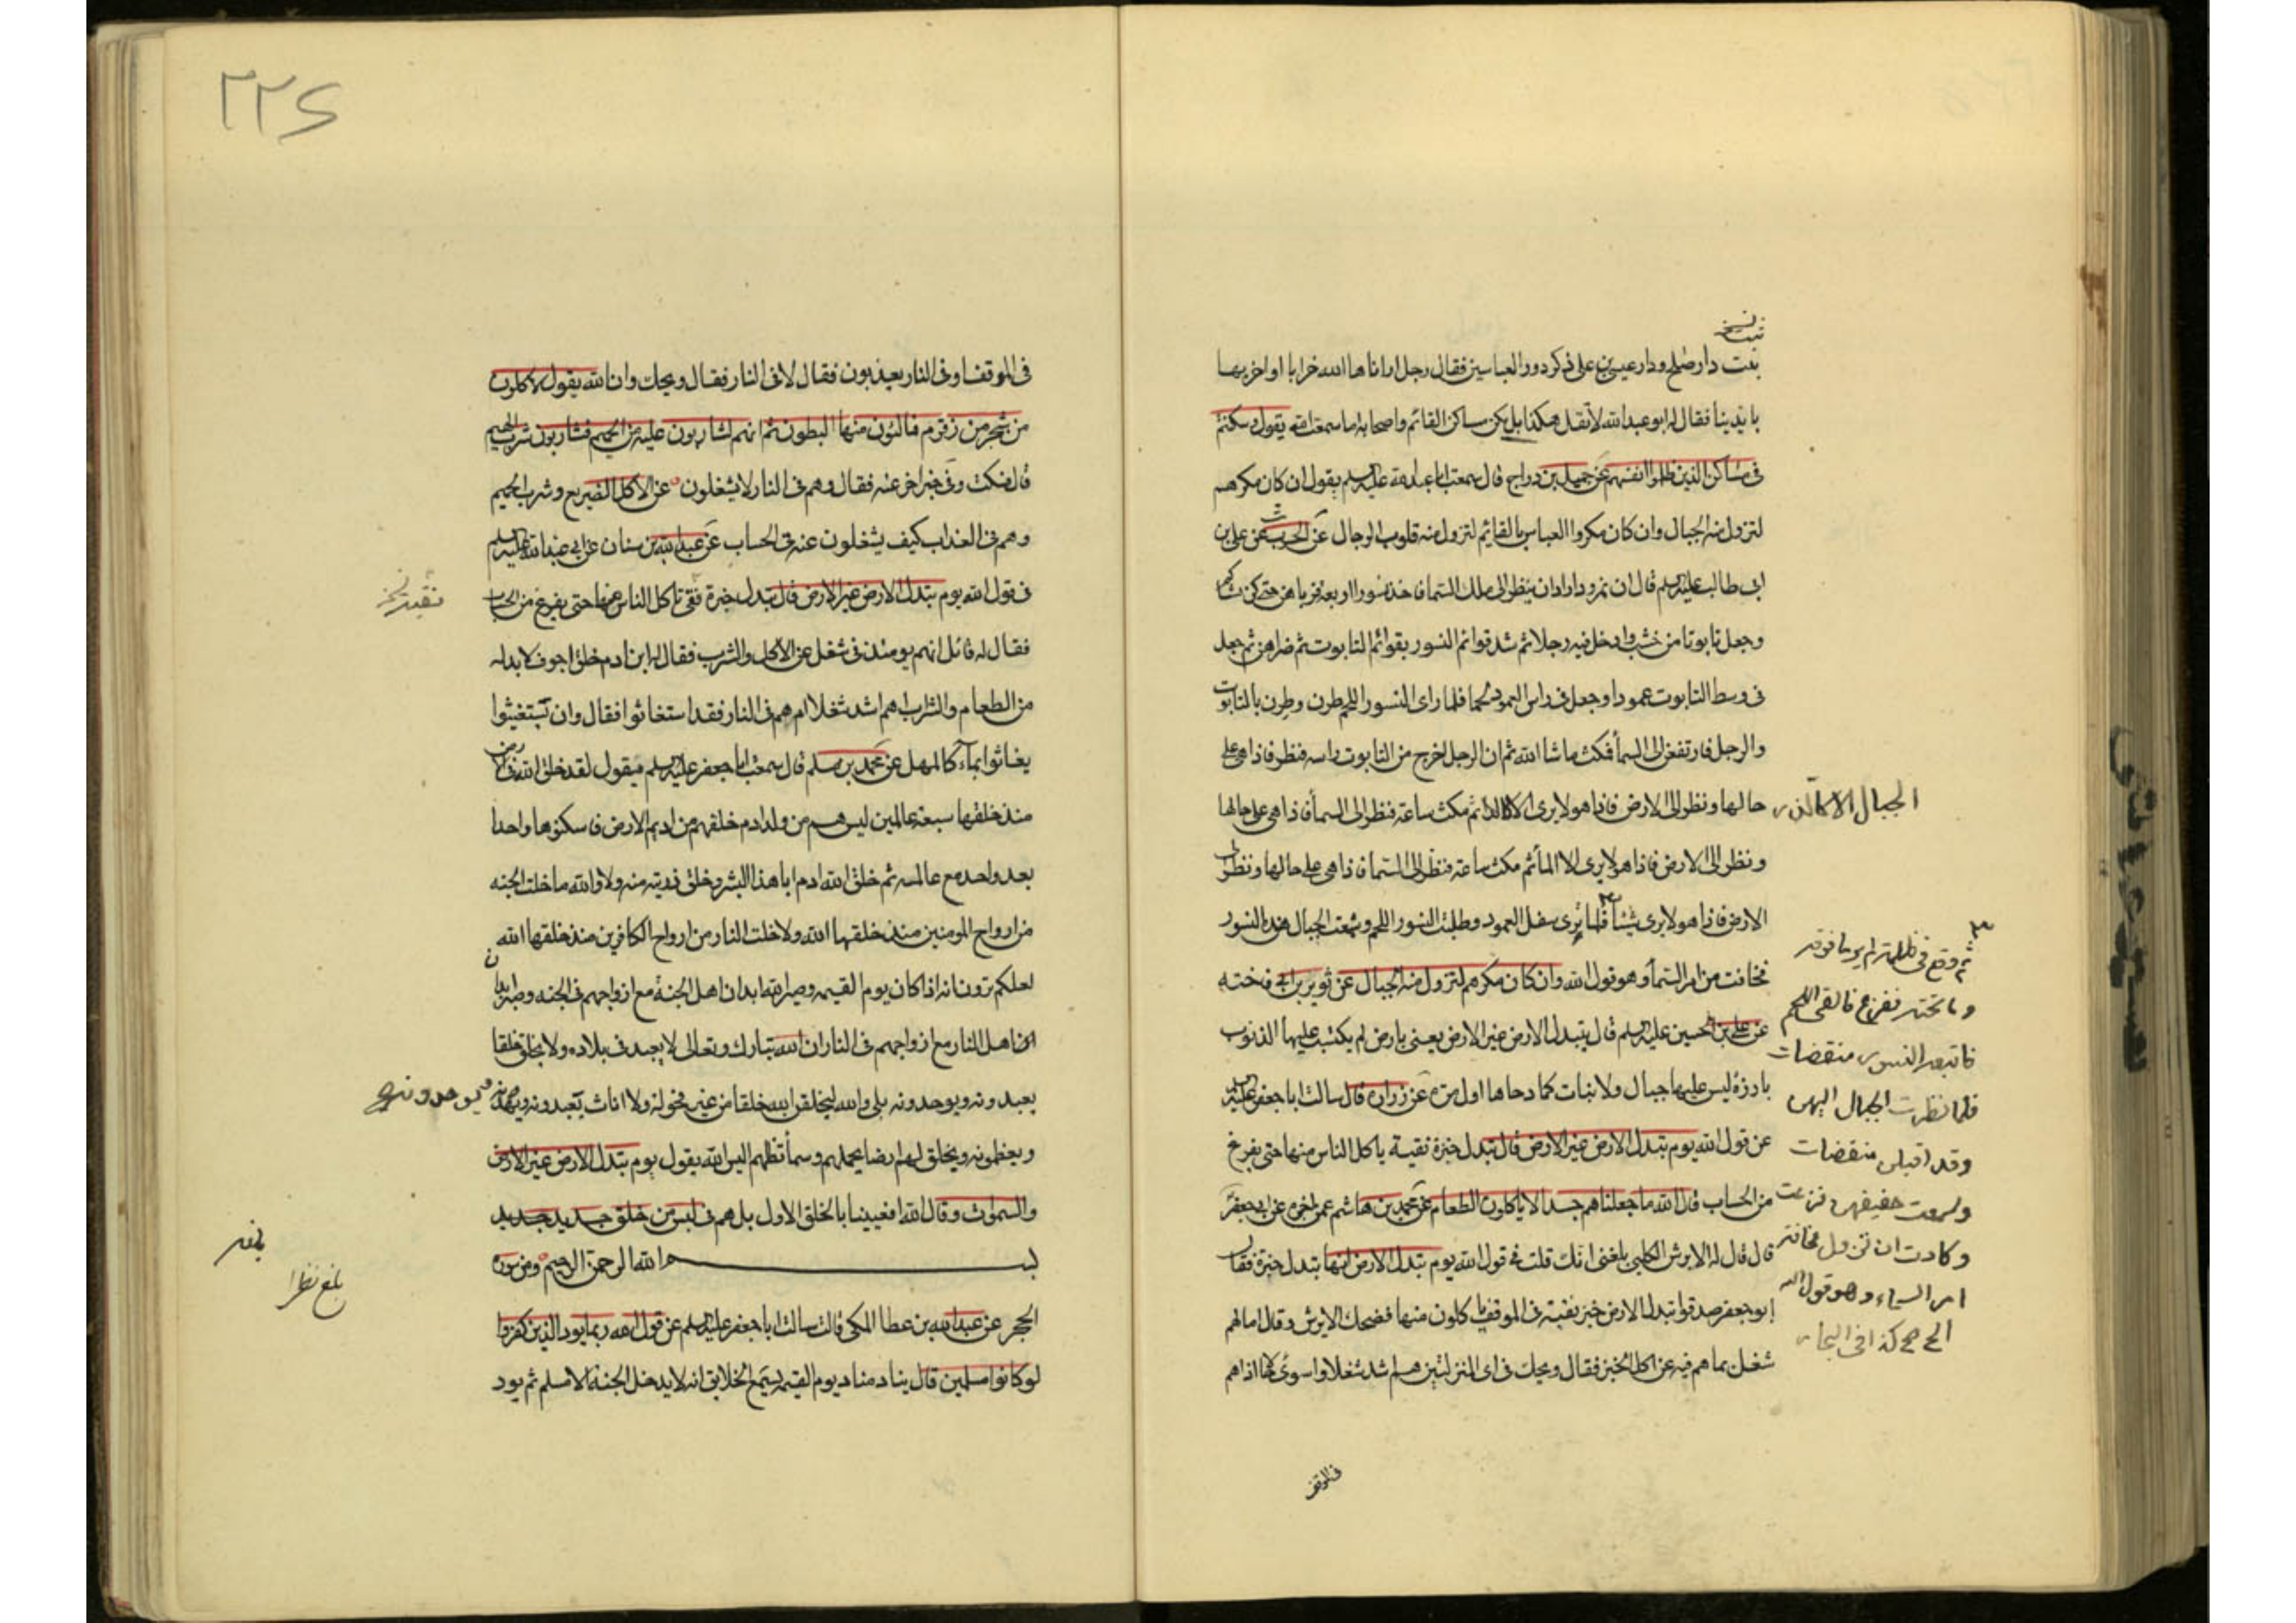 نسخه
ثبت
بنت دار صلح ودار عيسى بن على ذكر دور العباسين فقال رجل اراناها الله خرابا او اخربها
بايدينا فقال له ابو عبدالله لا تقل هكذا بل يكن مساكن القائم واصحابه اما سمعت الله يقول وسكنتم
فى مساكن الذين ظلموا انفسهم عن جميل بن دراج قال سمعت ابا عبدالله عليه السلم يقول ان كان مكرهم
لتزول منه الجبال وان كان مكروا العباس بالقايم لتزول منه قلوب الرجال عن الحرث عن على بن
ابى طالب عليه السلم قال ان نمرود اراد ان ينظر الى ملك السما فاخذ نسورا اربعة فرباهن حتى كن
وجعل تابوتا من خشب وادخل فيه رجلا ثم شد قوائم النسور بقوائم التابوت ثم جعل
فى وسط التابوت عمودا وجعل فى راس العمود لحما فلما راى النسور اللحم طرن وطرن بالتابوت
والرجل فارتفعن الى السمأ فمكث ما شا الله ثم ان الرجل اخرج من التابوت راسه فنظر فاذا هى على
حالها ونظر الى الارض فاذا هو لا يرى الا كالذر ثم مكث ساعة فنظر الى السمأ فاذا هى على حالها
الجبال الا كالذر
ونظر الى الارض فاذا هو لا يرى الا المأ ثم مكث ساعة فنظر الى السمأ فاذا هى على حالها ونظر الى
الارض فاذا هو لا يرى شيئا فلما يرى سفل العمود وطلبت النسور اللحم وسمعت الجبال هدة النسور
فخافت من امر السمأ وهو قول الله وان كان مكرهم لتزول منه الجبال عن ثوير بن ابى فاخته
عن على بن الحسين عليه السلم قال تبدل الارض غير الارض يعنى بارض لم يكتسب عليها الذنوب
بارزة ليس عليها جبال ولا نبات كما دحاها اول مرة عن زرارة قال سالت ابا جعفر عليه السلم
عن قول الله يوم تبدل الارض غير الارض قال تبدل خبزة نقية ياكل الناس منها حتى يفرغ
من الحساب قال الله ما جعلناهم جسدا لا ياكلون الطعام عن محمد بن هاشم عمن اخبره عن ابى جعفر
قال قال له الابرش الكلبى بلغنى انك قلت فى قول الله يوم تبدل الارض انها تبدل خبزة فقال
ابو جعفر صدقوا تبدل الارض خبز نقية فى الموقف ياكلون منها فضحك الابرش وقال اما لهم
شغل بما هم فيه عن اكل الخبز فقال ويحك فى اى المنزلتين هم اشد شغلا واسوئ حالا اذا هم
ثم وقع فى ظلمة لم ير ما فوقه
وما تحته ففزع فالقى اللحم
فاتبعته النسور منقضات
فلما نظرت الجبال اليهن
وقد اقبلن منقضات
وسمعت حفيفهن فزعت
وكادت ان تزول مخافة
امر السماء وهو قول الله
الخ صح كذا فى البحار
فى الموقف
٢٢٤
فى الموقف او فى النار يعذبون فقال لا فى النار فقال ويحك وان الله يقول لاكلون
من شجر من زقوم فمالئون منها البطون ثم انهم لشاربون عليه من الحميم فشاربون شرب الهيم
قال فسكت وفى خبر اخر عنه فقال وهم فى النار لا يشغلون عن الاكل الضريع وشرب الحميم
وهم فى العذاب كيف يشغلون عنه فى الحساب عن عبدالله بن سنان عن ابى عبدالله عليه السلم
فى قول الله يوم تبدل الارض غير الارض قال تبدل خبزة نقى تاكل الناس منها حتى يفرغ من الحساب
نقية نخ
فقال له قائل انهم يومئذ فى شغل عن الاكل والشرب فقال له ابن ادم خلق اجوف لا بد له
من الطعام والشراب هم اشد شغلا ام هم فى النار فقد استغاثوا فقال وان يستغيثوا
يغاثوا بمآء كالمهل عن محمد بن مسلم قال سمعت ابا جعفر عليه السلم فيقول لقد خلق الله فى الارض
منذ خلقها سبعة عالمين ليس هم من ولد ادم خلقهم من اديم الارض فاسكنوها واحدا
بعد واحد مع عالمه ثم خلق الله ادم ابا هذا البشر وخلق ذريته منه ولا والله ما خلت الجنه
من ارواح المومنين منذ خلقها الله ولا خلت النار من ارواح الكافرين منذ خلقها الله
لعلكم ترون انه اذا كان يوم القيمه وصير الله ابدان اهل الجنة مع ازواجهم فى الجنه وصير ابدان
اهل النار مع ازواجهم فى النار ان الله تبارك وتعالى لا يعبد فى بلاده ولا يخلق خلقا
يعبدونه ويوحدونه بلى والله ليخلقن الله خلقا من غير فحولة ولا اناث يعبدونه
ويوحدونه صح
ويعظمونه ويخلق لهم ارضا يحملهم وسمأ تظلهم اليس الله يقول يوم تبدل الارض غير الارض
والسموات وقال الله افعيينا بالخلق الاول بل هم فى لبس من خلق جديد
بسم الله الرحمن الرحيم ومن سورة
بلغ نظرا
الحجر عن عبدالله بن عطا المكى قالت سالت ابا جعفر عليه السلم عن قول الله ربما يود الذين كفروا
لو كانوا مسلمين قال يناد مناد يوم القيمه يسمع الخلايق انه لا يدخل الجنة الا مسلم ثم يود